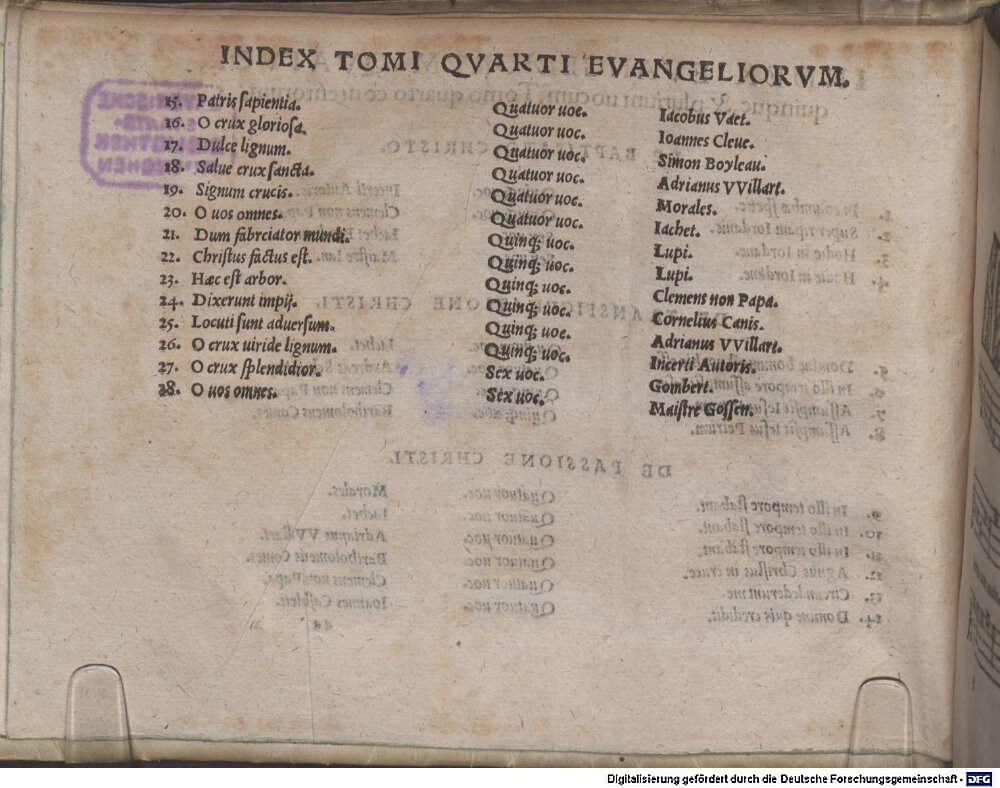 INDEX TOMI QVARTI EVANGELIORVM.
15. Patris sapientia. Quatuor uoc. Iacobus Vaet.
16. O crux gloriosa. Quatuor uoc. Ioannes Cleue.
17. Dulce lignum. Quatuor uoc. Simon Boyleau.
18. Salue crux sancta. Quatuor uoc. Adrianus VVillart.
19. Signum crucis. Quatuor uoc. Morales.
20. O uos omnes. Quatuor uoc. Iachet.
21. Dum fabrciator mundi. Quinq; uoc. Lupi.
22. Christus factus est. Quinq; uoc. Lupi.
23. Hæc est arbor. Quinq; uoc. Clemens non Papa.
24. Dixerunt impij. Quinq; uoc. Cornelius Canis.
25. Locuti sunt aduersum. Quinq; uoc. Adrianus VVillart.
26. O crux uiride lignum. Quinq; uoc. Incerti Autoris.
27. O crux splendidior. Sex uoc. Gombert.
28. O uos omnes. Sex uoc. Maistre Gossen.
Digitalisierung gefördert durch die Deutsche Forschungsgemeinschaft - DFG